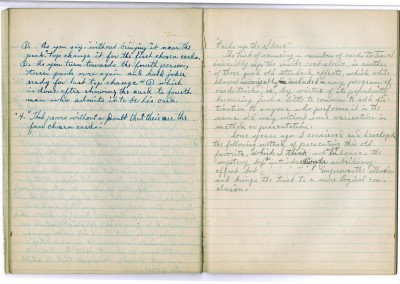 D. As you say, "without bringing it near the
pack" top change it for the first chosen card.
E. As you turn towards the fourth person,
turn pack over again and hold joker
ready for last top change "D" which
is done after showing the card to fourth
man who admits it to be his card.
"4. "This proves without a doubt that these are the
four chosen cards."
"Cards up the Sleeve"
The trick of causing a number of cards to travel
invisibly up the inside coat sleeve, is another
of those good old standard effects, which while
almost invariably included in any program of
card tricks, is, by virtue of its popularity
becoming just a little too common to add
attention to anyone who performs it in the
same old way without some variation in
method or presentation.
Some years ago I conceived and developed
the following method of presenting this old
favorite, which I think enhances the
"mystery" by introducing a subsidiary
effect but improves the illusion
and brings the trick to a more logical con-
clusion.